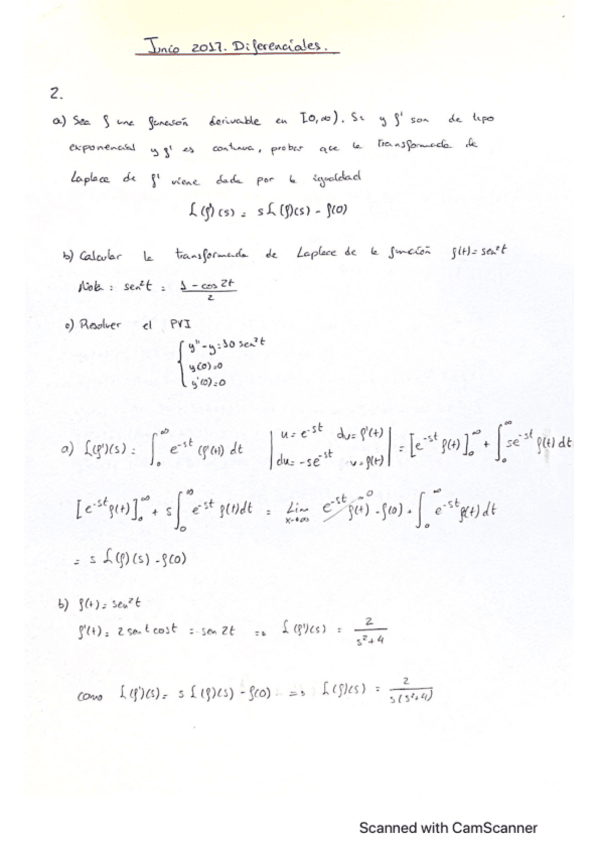 Junio 2017. Diferenciales.
2.
a) Sea f una función derivable en [0,∞). Si y f' son de tipo
exponencial y f' es continua, probar que la transformada de
Laplace de f' viene dada por la igualdad
L(f')(s) = sL(f)(s) - f(0)
b) Calcular la transformada de Laplace de la función f(t) = sen²t
Nota: sen²t = (1 - cos 2t)/2
c) Resolver el PVI
y'' - y = 10 sen²t
y(0) = 0
y'(0) = 0
a) L(f')(s) = ∫₀^∞ e^-st (f'(t)) dt | u = e^-st dv = f'(t) du = -se^-st v = f(t) | = [e^-st f(t)]₀^∞ + ∫₀^∞ se^-st f(t) dt
[e^-st f(t)]₀^∞ + s∫₀^∞ e^-st f(t) dt = Lim x→+∞ e^-st f(t) →0 - f(0) + ∫₀^∞ e^-st f(t) dt
= s L(f)(s) - f(0)
b) f(t) = sen²t
f'(t) = 2 sen t cos t = sen 2t => L(f')(s) = 2/(s²+4)
como L(f')(s) = s L(f)(s) - f(0) => L(f)(s) = 2/(s(s²+4))
Scanned with CamScanner